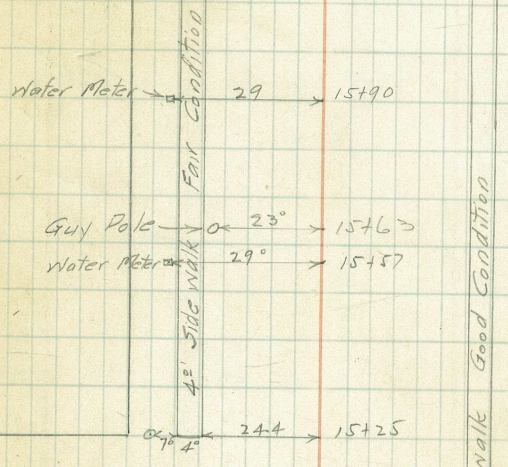 Water Meter 29 15+90
Guy Pole 23° 15+63
Water Meter 29° 15+57
7° 4° 24.4 15+25
4°' Side Walk Fair Condition
walk Good Condition